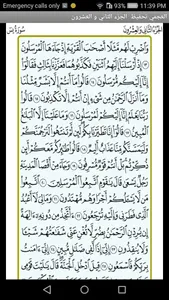 Emergency calls only
11:39 PM
المجمي تحفيظ الجزء الثاني و العشرون
الجزء الثاني والعشرون
سورة يس
وَاضْرِبْ لَهُم مَّثَلًا أَصْحَابَ الْقَرْيَةِ إِذْ جَاءَهَا الْمُرْسَلُونَ
إِذْ أَرْسَلْنَا إِلَيْهِمُ اثْنَيْنِ فَكَذَّبُوهُمَا فَعَزَّزْنَا بِثَالِثٍ فَقَالُوا
إِنَّا إِلَيْكُم مُّرْسَلُونَ ١٤ قَالُوا مَا أَنتُمْ إِلَّا بَشَرٌ مِّثْلُنَا
وَمَا أَنزَلَ الرَّحْمَٰنُ مِن شَيْءٍ إِنْ أَنتُمْ إِلَّا تَكْذِبُونَ ١٥
قَالُوا رَبُّنَا يَعْلَمُ إِنَّا إِلَيْكُمْ لَمُرْسَلُونَ ١٦ وَمَا عَلَيْنَا
إِلَّا الْبَلَاغُ الْمُبِينُ ١٧ قَالُوا إِنَّا تَطَيَّرْنَا بِكُمْ لَئِن لَّمْ تَنتَهُوا
لَنَرْجُمَنَّكُمْ وَلَيَمَسَّنَّكُم مِّنَّا عَذَابٌ أَلِيمٌ ١٨ قَالُوا طَائِرُكُم
مَّعَكُمْ أَئِن ذُكِّرْتُم بَلْ أَنتُمْ قَوْمٌ مُّسْرِفُونَ ١٩ وَجَاءَ مِنْ أَقْصَا الْمَدِينَةِ
رَجُلٌ يَسْعَىٰ قَالَ يَا قَوْمِ اتَّبِعُوا الْمُرْسَلِينَ ٢٠ اتَّبِعُوا
مَن لَّا يَسْأَلُكُمْ أَجْرًا وَهُم مُّهْتَدُونَ ٢١ وَمَا لِيَ لَا أَعْبُدُ
الَّذِي فَطَرَنِي وَإِلَيْهِ تُرْجَعُونَ ٢٢ أَأَتَّخِذُ مِن دُونِهِ آلِهَةً
إِن يُرِدْنِ الرَّحْمَٰنُ بِضُرٍّ لَّا تُغْنِ عَنِّي شَفَاعَتُهُمْ شَيْئًا
وَلَا يُنقِذُونِ ٢٣ إِنِّي إِذًا لَّفِي ضَلَالٍ مُّبِينٍ ٢٤ إِنِّي آمَنتُ
بِرَبِّكُمْ فَاسْمَعُونِ ٢٥ قِيلَ ادْخُلِ الْجَنَّةَ قَالَ يَا لَيْتَ قَوْمِي